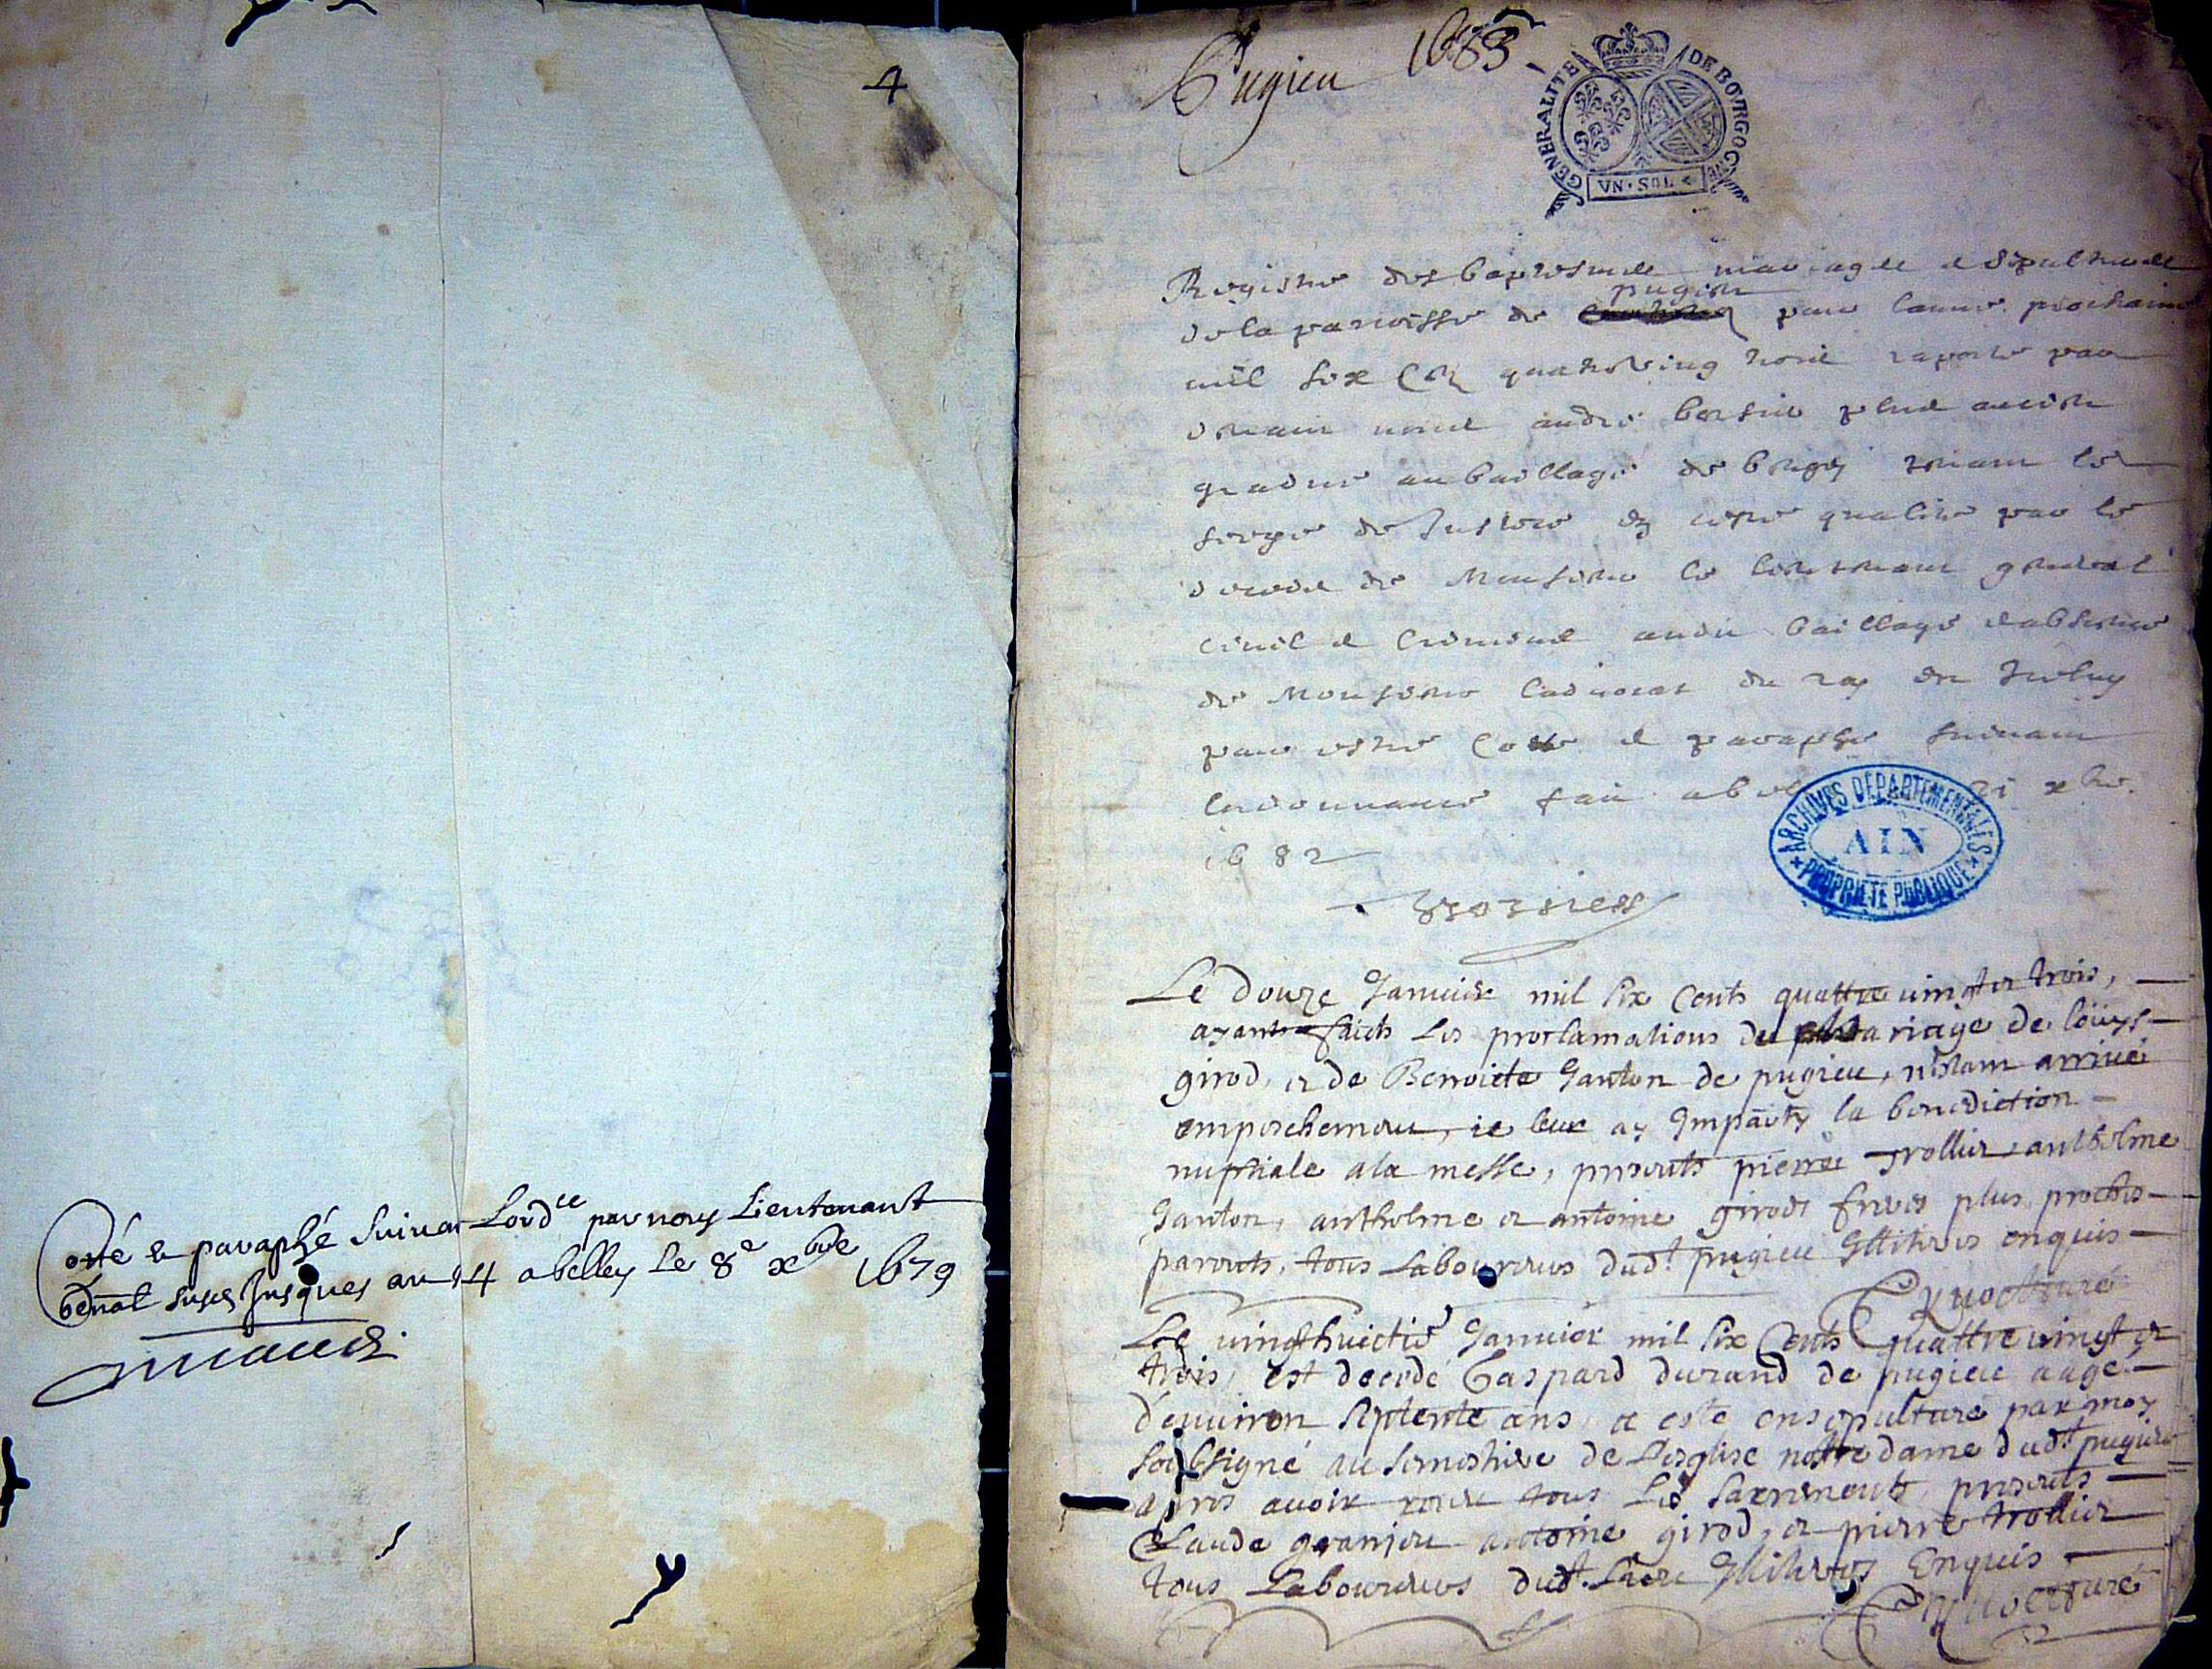 4
Cotté & paraphé suivat Lord.ce par nous Lieutenant
genâl susd. Jusques au 14 a belley Le 8e xbre 1679
Pugieu 1683
GENERALITE DE BOVRGOGNE
VN · SOL
Registre des baptesmes mariages et sepultures
de la parroisse de pugieu pour lanne prochaine
mil six cen quatreving trois raporte par
devant nous andre plus ancien
gradue au baillage de bugey tenant le
siege de Justice en ceste qualite par le
deces de Monsieur le lieutenant general
civil et Criminel audit baillage et absence
de Monsieur ladvocat du roy
pour estre Cotte et paraphe suivant
lordonnance fait a be 21 xbre.
1682
ARCHIVES DÉPARTEMENTALES
AIN
PROPRIÉTÉ PUBLIQUE
Le douze Januier mil six Cents quattre uingt et trois,
ayant faicts les proclamations du mariage de loüys
girod, et de Benoicte Janton de pugieu, nestant arriué
empeschement, ie leur ay Imparty la benediction
nuptiale a la messe, presents pierre trollier, antholme
Janton, antholme et antoine girods freres plus proches
parents, tous Laboureurs dud.t pugieu Illitteres enquis
curé
Le uingthuictie Januier mil six Cents quattre uingt et
trois, est decedé Gaspard durand de pugieu aagé
d'enuiron septente ans, a esté ensepulturé par moy
soubsigné au semestiere de L'esglise nostre dame dud.t pugieu
apres auoir receu tous Les Sacrements, presents
Claude granjeu antoine girod, et pierre trollier
tous Laboureurs dud.t Lieu Illitterés Enquis
curé